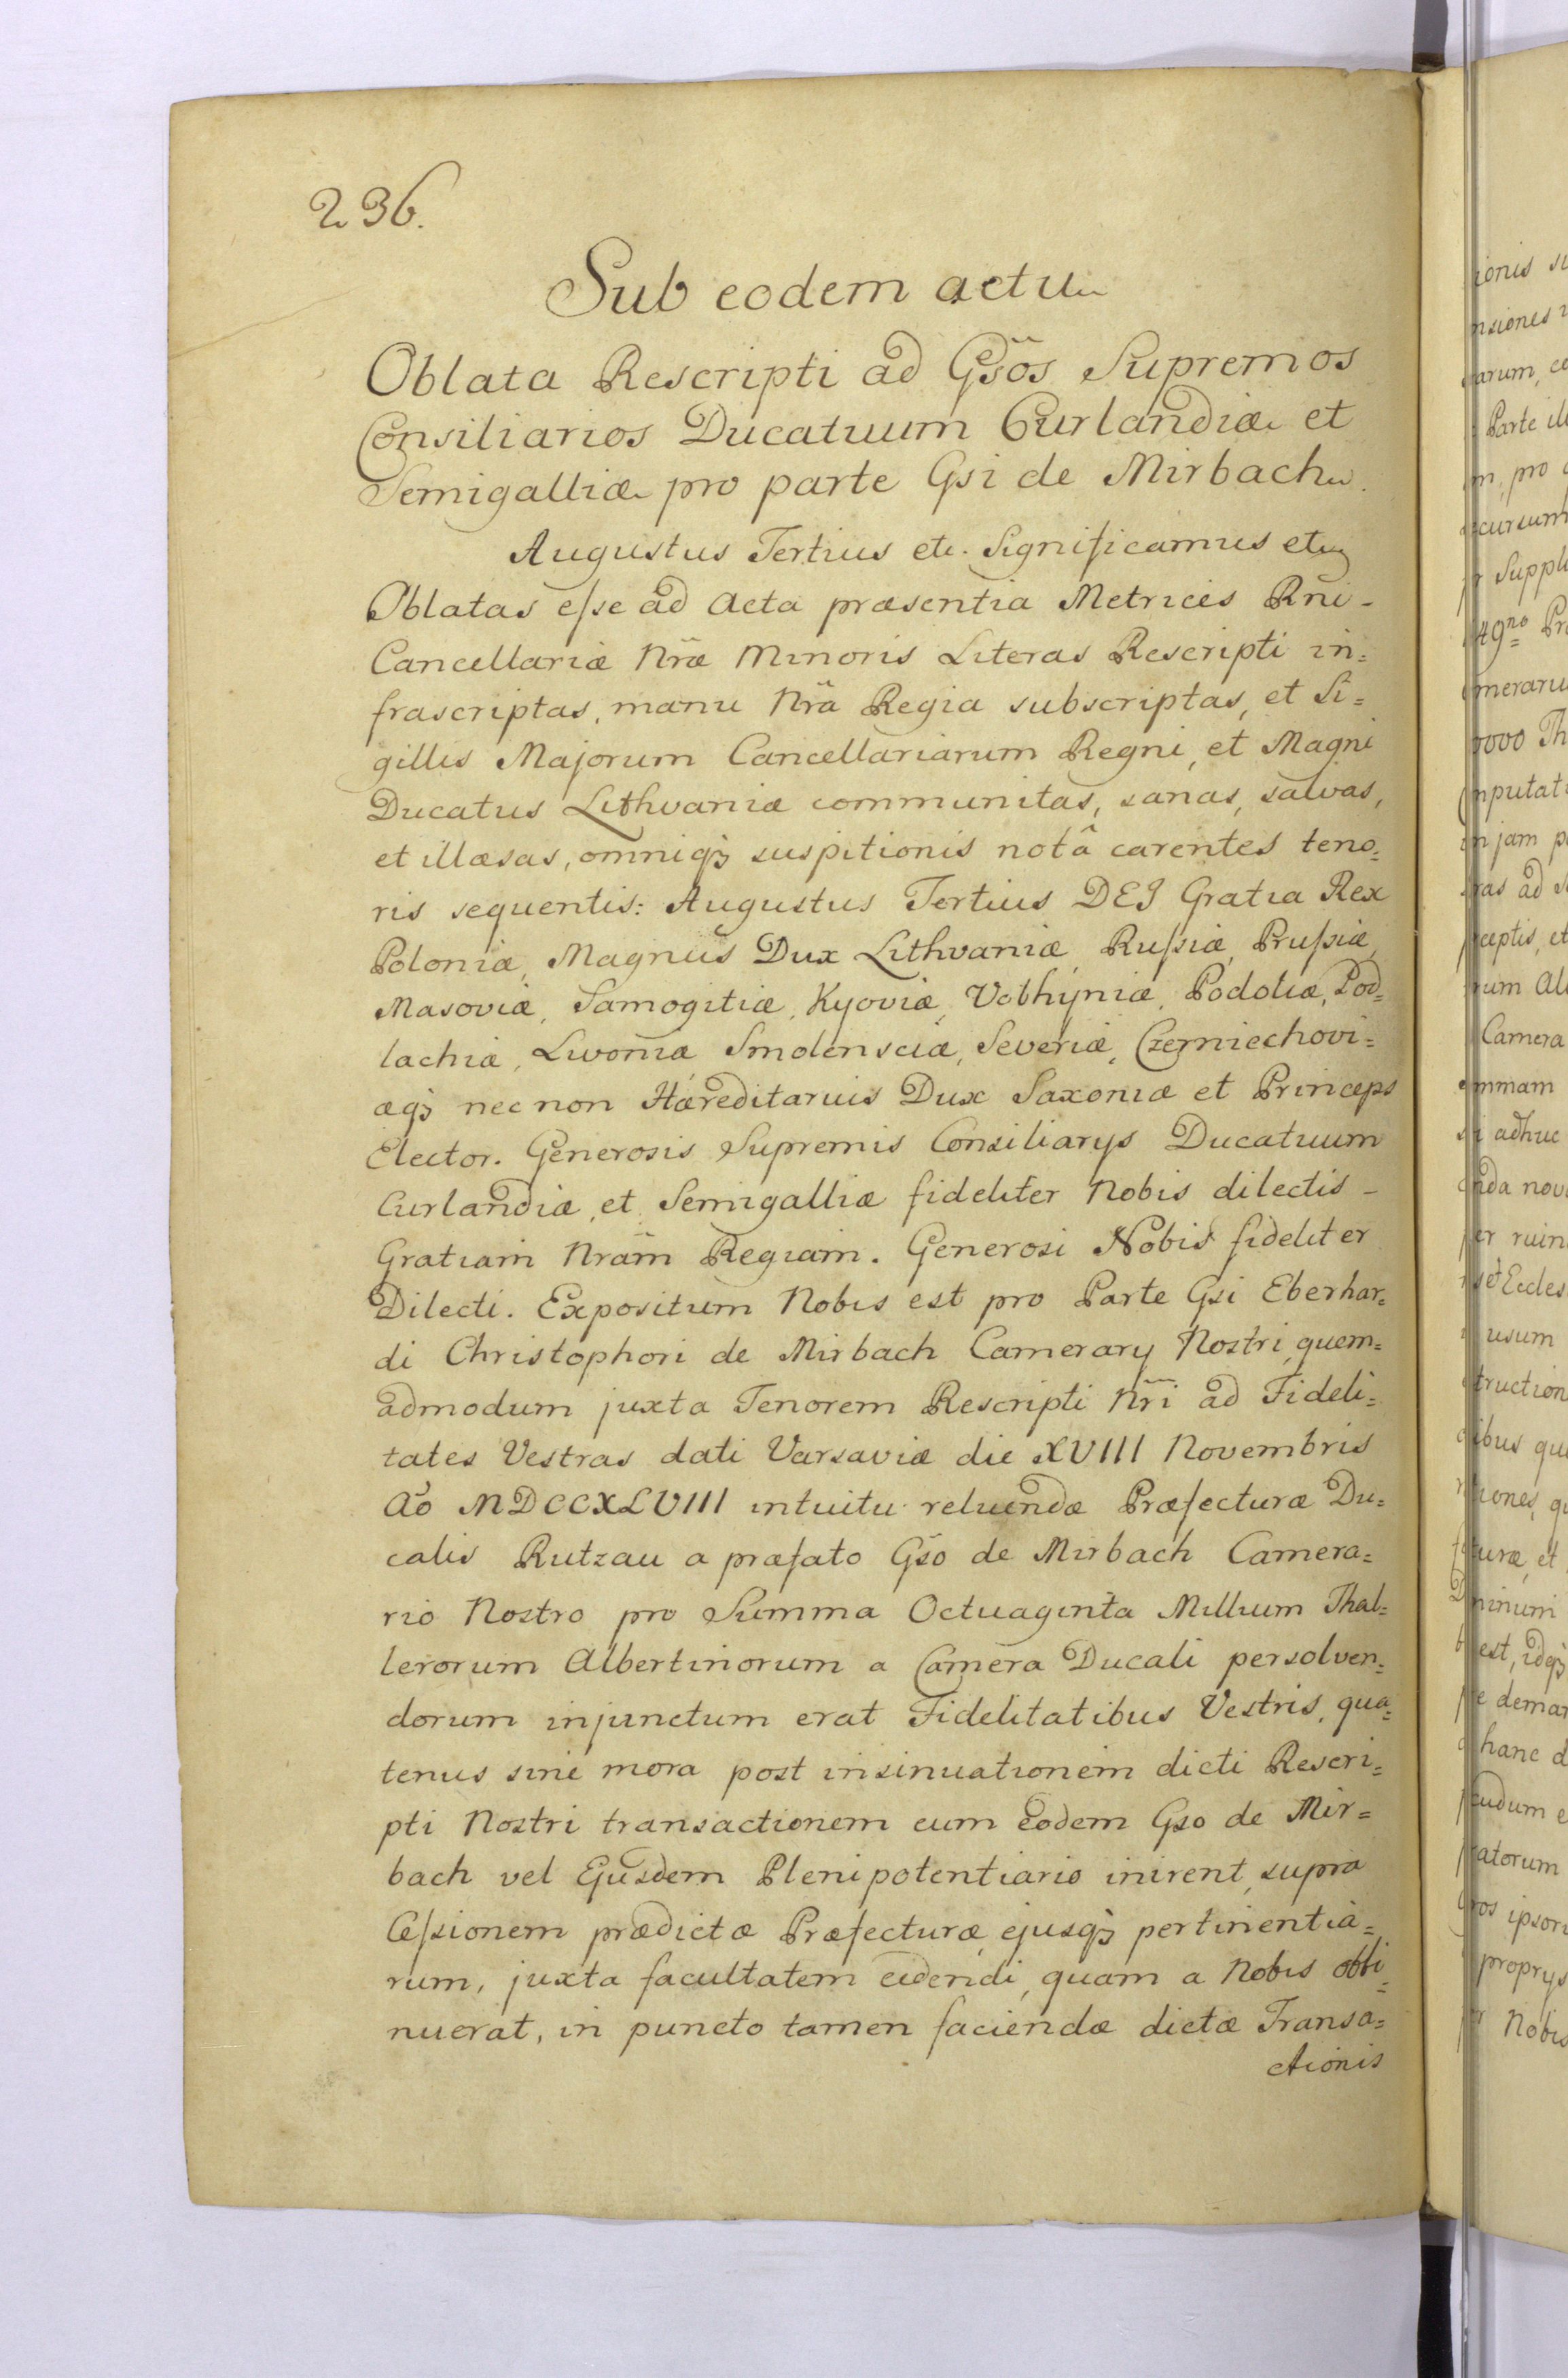 236.
Sub eodem actu
Oblata Rescripti ad Gsõs Supremos
Consiliarios Ducatuum Curlandiæ et
Semigalliæ pro parte Gsi de Mirbach.
Augustus Tertius etc. Significamus etc
Oblatas esse ad Acta præsentia Metrices Rni-
Cancellariæ Nr̃æ Minoris Literas Rescripti in=
frascriptas, manu Nr̃a Regia subscriptas, et Si=
gillis Majorum Cancellariarum Regni, et Magni
Ducatus Lithvaniæ communitas, sanas, salvas,
et illæsas, omniq̃ suspitionis notâ carentes teno=
ris sequentis: Augustus Tertius DEI Gratia Rex
Poloniæ, Magnus Dux Lithvaniæ, Russiæ, Prussiæ,
Masoviæ, Samogitiæ, Kyoviæ, Volhyniæ, Podoliæ, Pod=
lachiæ, Livoniæ Smolensciæ, Severiæ, Czerniechovi=
æq̃ nec non Hæreditarius Dux Saxoniæ et Princeps
Elector. Generosis Supremis Consiliarys Ducatuum
Curlandiæ, et Semigalliæ fideliter Nobis dilectis -
Gratiam Nr̃am Regiam. Generosi Nobis fideliter
Dilecti. Expositum Nobis est pro Parte Gsi Eberhar=
di Christophori de Mirbach Camerary Nostri, quem=
admodum juxta Tenorem Rescripti Nr̃i ad Fideli=
tates Vestras dati Varsaviæ die XVIII Novembris
Aõ MDCCXLVIII intuitu reluendæ Præfecturæ Du=
calis Rutzau a præfato Gso de Mirbach Camera=
rio Nostro pro Summa Octuaginta Millium Thal=
lerorum Albertinorum a Camera Ducali persolven=
dorum injunctum erat Fidelitatibus Vestris, qua=
tenus sine mora post insinuationem dicti Rescri=
pti Nostri transactionem cum eodem Gso de Mir=
bach vel Ejusdem Plenipotentiario inirent, supra
Cessionem prædictæ Præfecturæ, ejusq̃ pertinentia=
rum, juxta facultatem cedendi, quam a Nobis obti=
nuerat, in puncto tamen faciendæ dictæ Transa=
ctionis